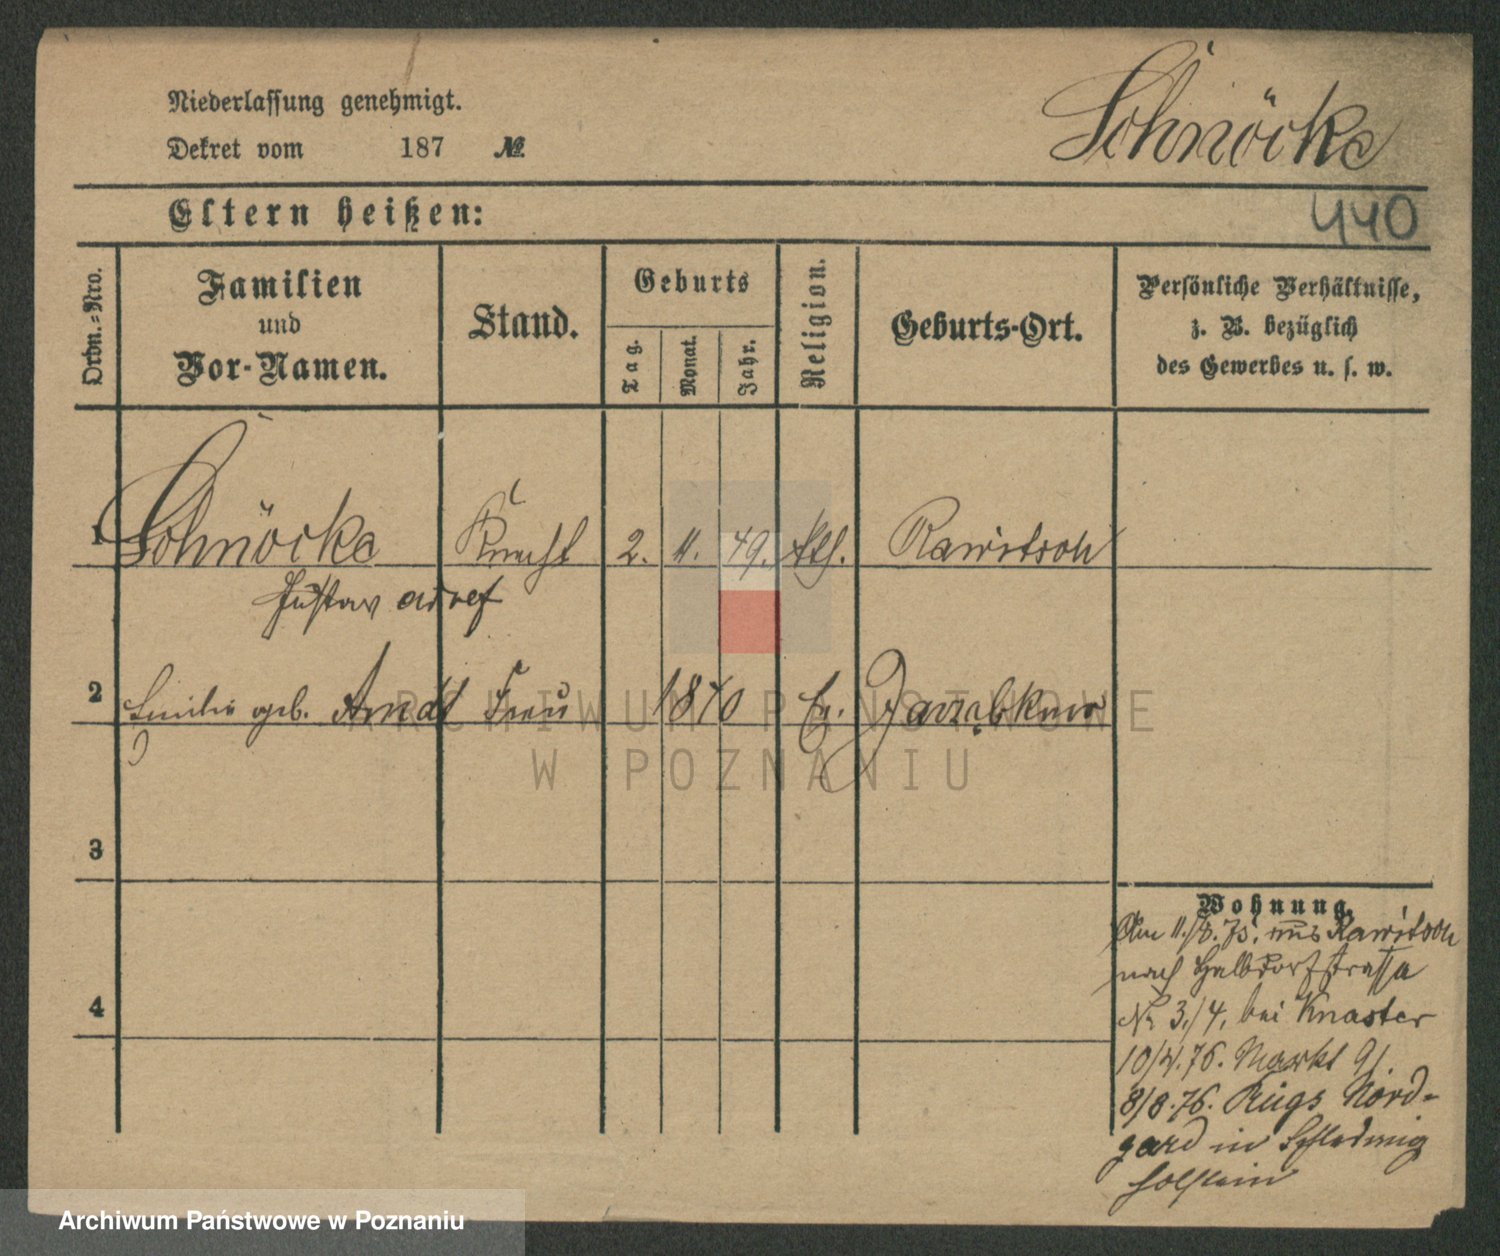 Niederlassung genehmigt.
Schnöcke
Dekret vom 187 №
Eltern heißen:
440
Ordn.-Nro.
Familien
und
Vor-Namen.
Stand.
Geburts
Tag.
Monat.
Jahr.
Religion.
Geburts-Ort.
Persönliche Verhältnisse,
z. B. bezüglich
des Gewerbes u. s. w.
1 Schnöcke Knecht 2. 11. 49. kth. Rawitsch
Gustav Adolf
2 Emilie geb. Arndt Frau 1840 Ev.
3
4
Wohnung.
Am 11./8. 75. aus Rawitsch
nach Halbdorfstrasse
No 3/4, bei Knaster
10/4. 76. Markt 91.
8/8. 76. Nord-
gard in Schleswig
Holstein
ARCHIWUM PAŃSTWOWE
W POZNANIU
Archiwum Państwowe w Poznaniu